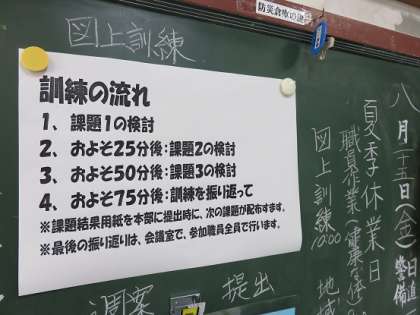 防災倉庫の鍵
図上訓練
訓練の流れ
1、課題1の検討
2、およそ25分後:課題2の検討
3、およそ50分後:課題3の検討
4、およそ75分後:訓練を振り返って
※課題結果用紙を本部に提出時に、次の課題が配布すます。
※最後の振り返りは、会議室で、参加職員全員で行います。
週案
提出
八月二十五日(金)
日直
警備
夏季休業日
職員作業
図上訓練10:00
地域